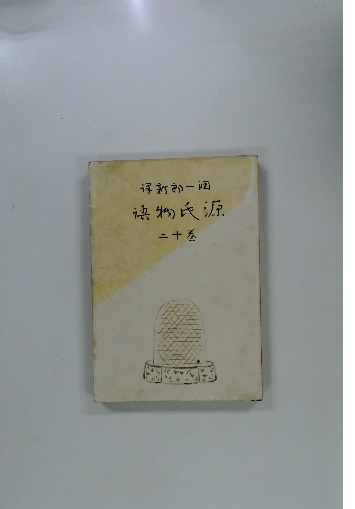 潤一郎新譯
源氏物語
卷十二